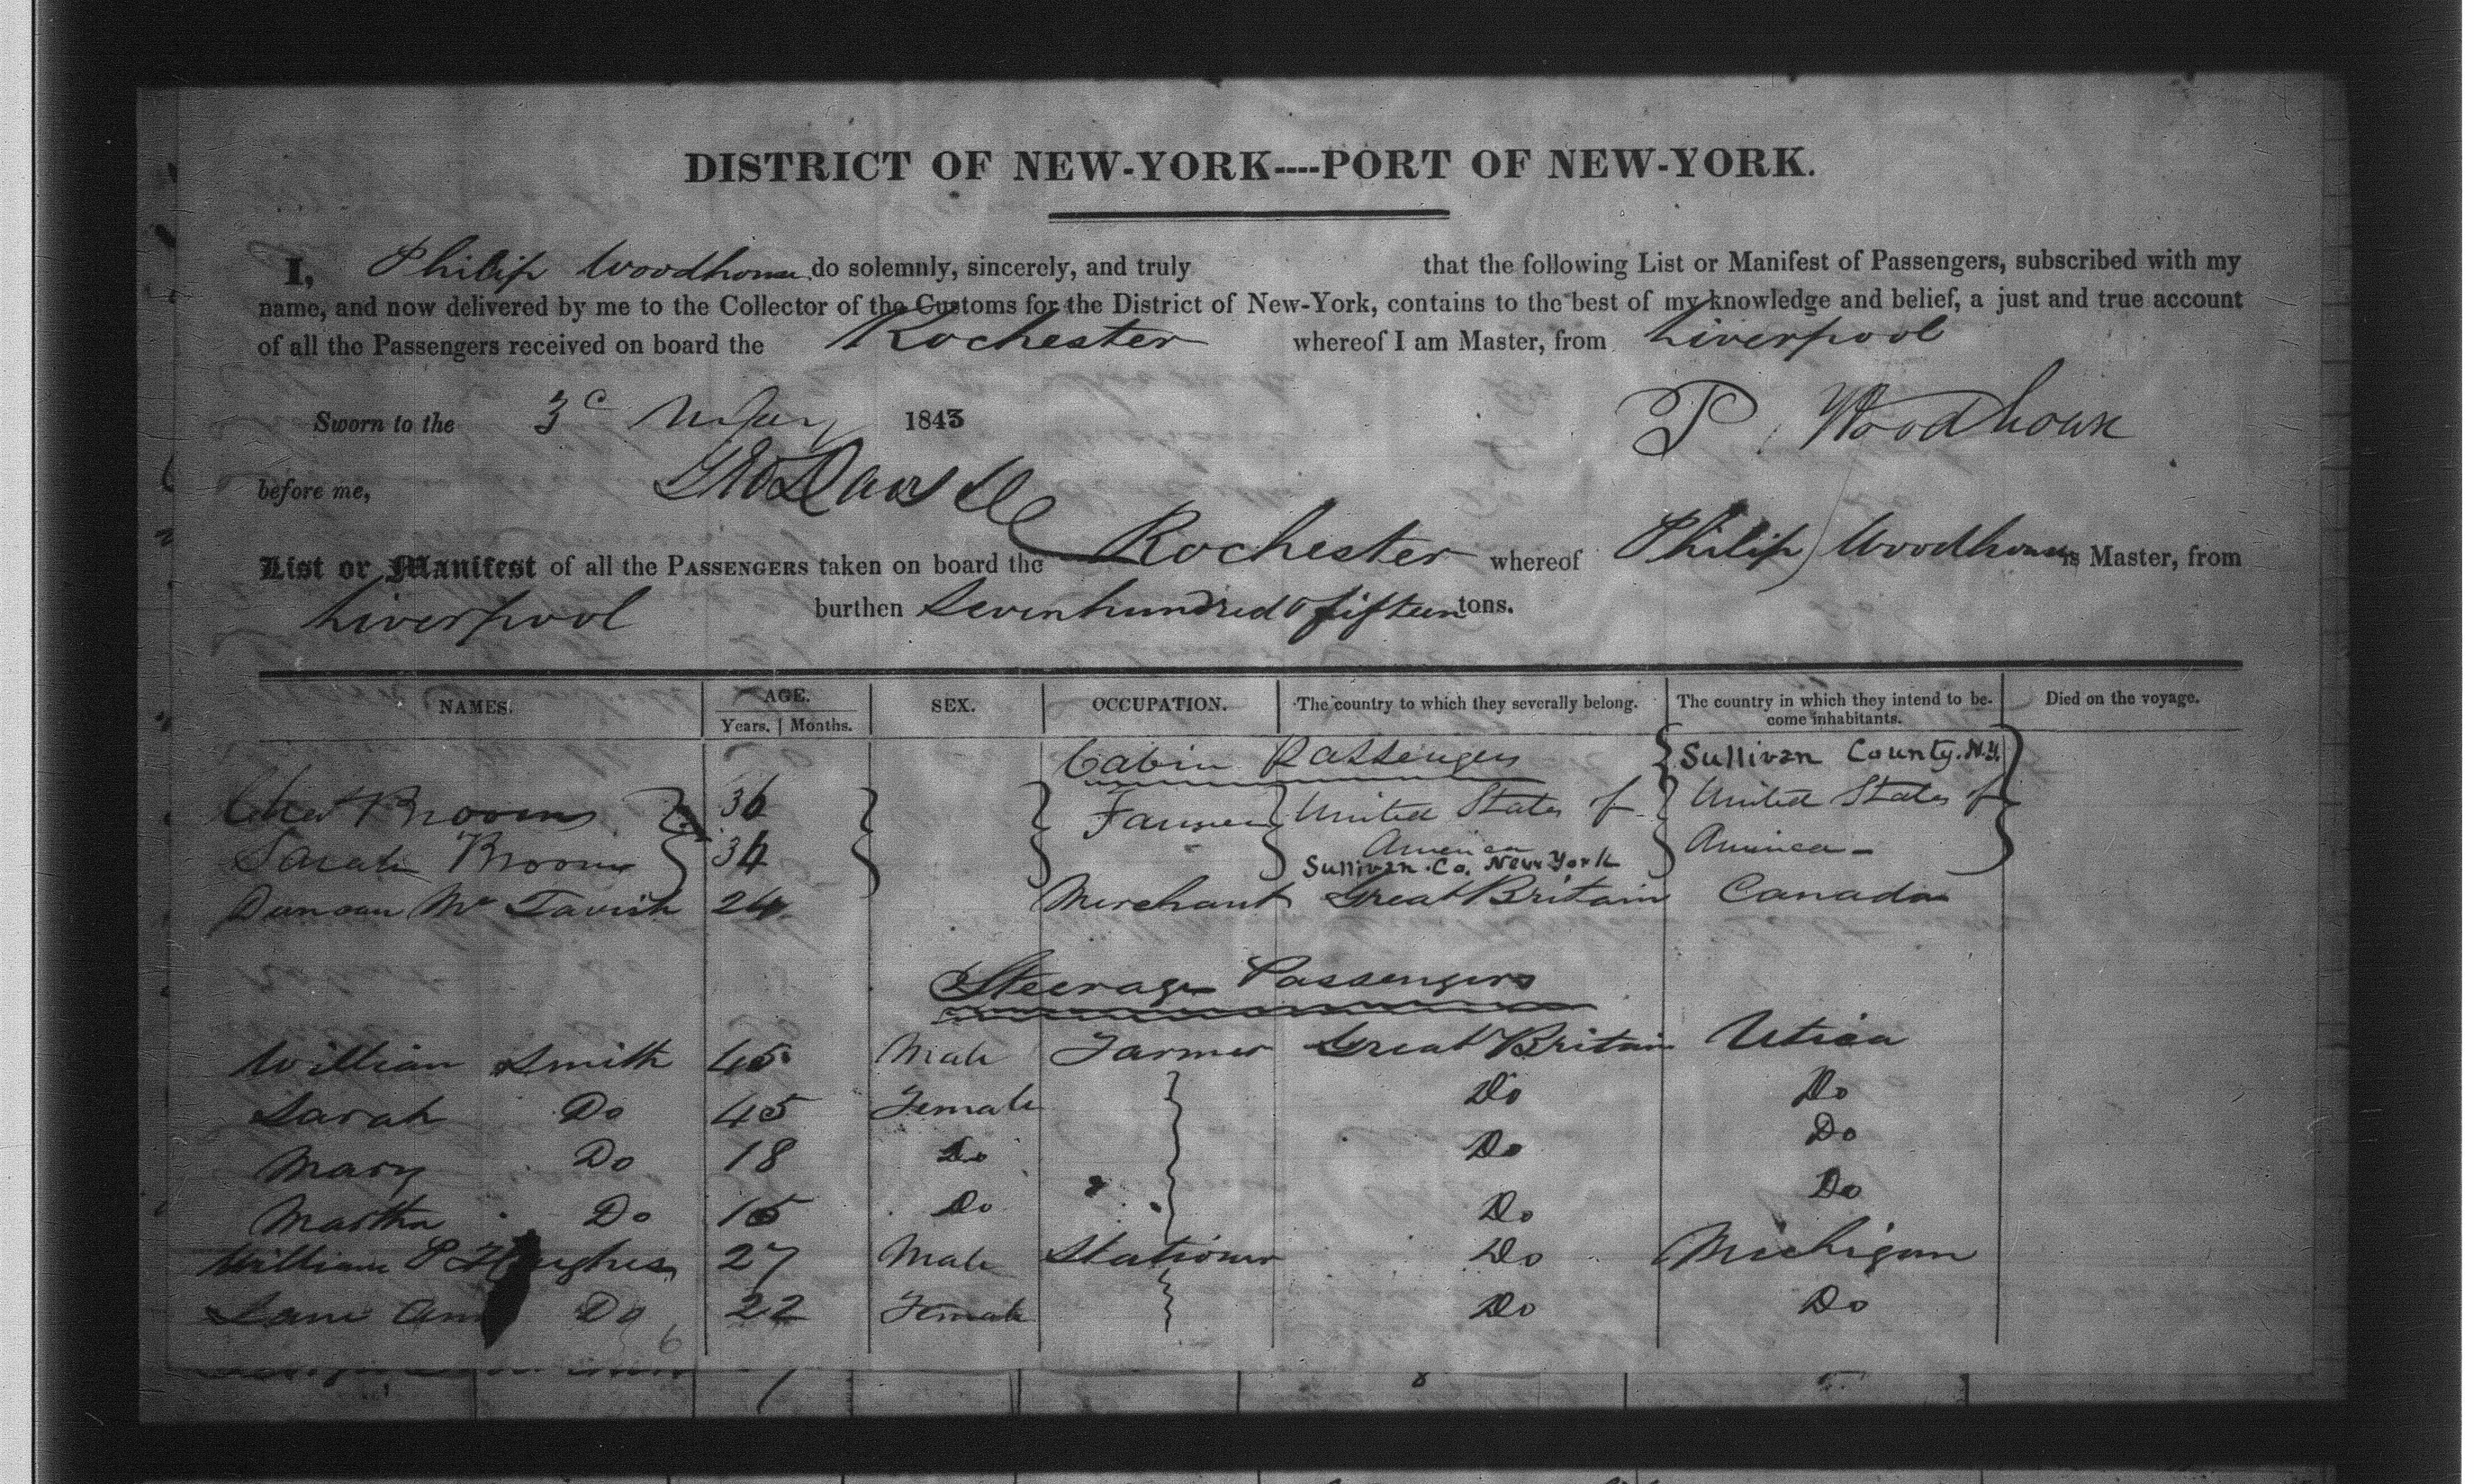 DISTRICT OF NEW-YORK----PORT OF NEW-YORK.
I, Philip Woodhouse do solemnly, sincerely, and truly that the following List or Manifest of Passengers, subscribed with my
name, and now delivered by me to the Collector of the Customs for the District of New-York, contains to the best of my knowledge and belief, a just and true account
of all the Passengers received on board the Rochester whereof I am Master, from Liverpool
Sworn to the 3 1843 P. Woodhouse
before me,
List or Manifest of all the PASSENGERS taken on board the Rochester whereof Philip Woodhouse is Master, from
Liverpool burthen Seven hundred & fifteen tons.
NAMES. AGE. SEX. OCCUPATION. The country to which they severally belong. The country in which they intend to be- Died on the voyage.
Years. Months. come inhabitants.
Cabin Passengers Sullivan County. N.Y.
Broom 36 Farmer United States of United States of
Sarah Broom 34 America America -
Sullivan. Co. New York
Duncan Mc Tavish 24 Merchant Great Britain Canada
Steerage Passengers
William Smith 45 Male Farmer Great Britain Utica
Sarah Do 45 Female Do Do
Mary Do 18 Do Do Do
Martha Do 15 Do Do Do
William P Hughes 27 Male Stationer Do Michigan
Jane Ann Do 22 Female Do Do
6